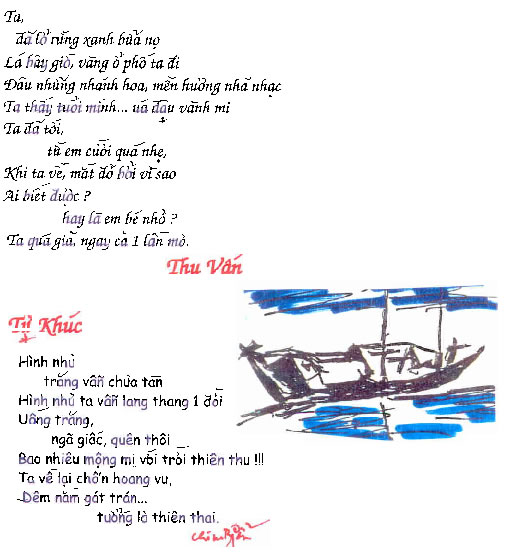 Ta,
đã lỡ rừng xanh bữa nọ
Lá bây giờ, vàng ở phố ta đi
Đâu những nhánh hoa, mến hương nhã nhạc
Ta thấy tuổi mình... úa đậu vành mi
Ta đã tối,
từ em cười quá nhẹ,
Khi ta về, mắt đỏ bởi vì sao
Ai biết được ?
hay là em bé nhỏ ?
Ta quá già, ngay cả 1 lần mơ.
Thu Vấn
Tự Khúc
Hình như
trăng vẫn chưa tàn
Hình như ta vẫn lang thang 1 đời
Uống trăng,
ngả giấc, quên thôi _.
Bao nhiêu mộng mị với trời thiên thu !!!
Ta về lại chốn hoang vu,
Đêm nằm gát trán...
tưởng là thiên thai.